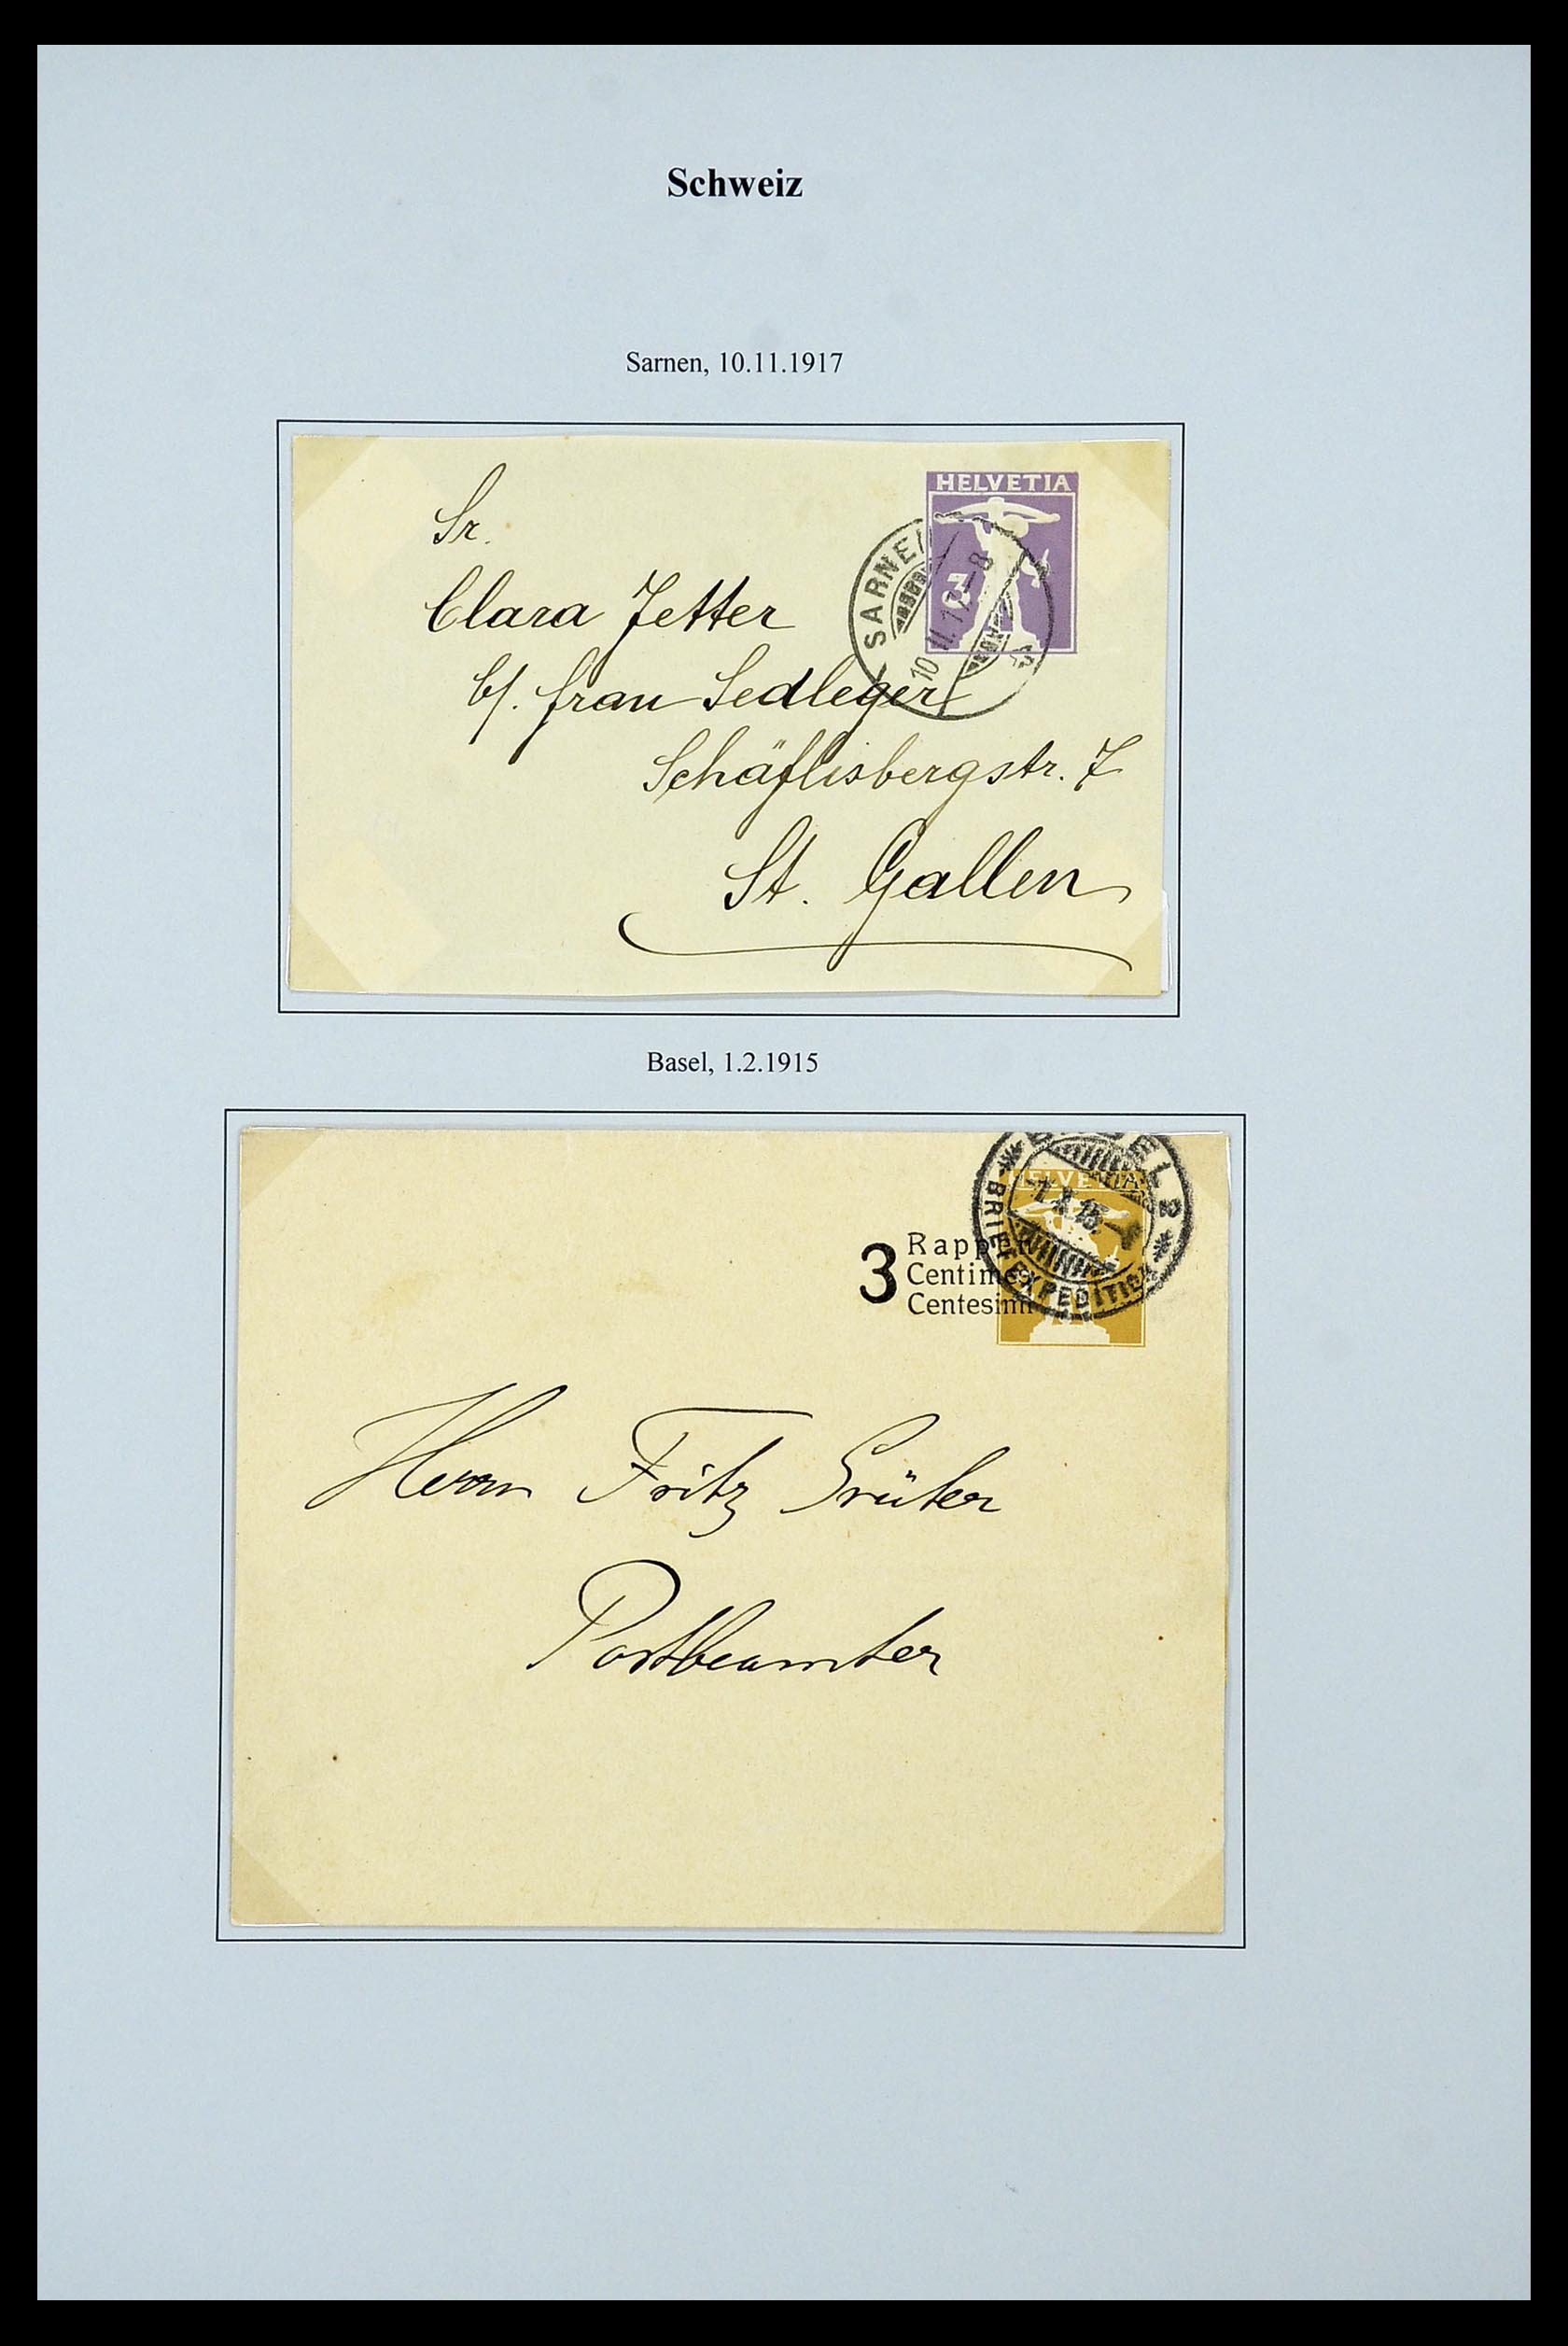 Schweiz
Sarnen, 10.11.1917
HELVETIA
3
SARNEN
10 II. 17.–8
Sr.
Clara Jetter
b/. Frau Sedleger
Schäflisbergstr. 7
St. Gallen
Basel, 1.2.1915
BASEL 2
HELVETIA
BRIEFEXPEDITION
3 Rappen
Centimes
Centesimi
Herrn Fritz Grüter
Postbeamter